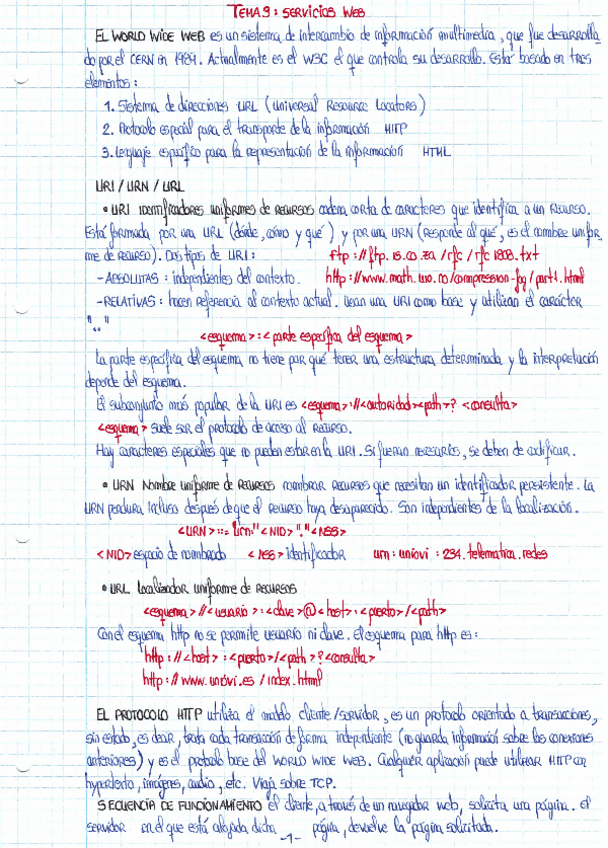 TEMA 9: SERVICIOS WEB
EL WORLD WIDE WEB es un sistema de intercambio de información multimedia, que fue desarrolla_
do por el CERN en 1989. Actualmente es el W3C el que controla su desarrollo. Está basado en tres
elementos:
1. Sistema de direcciones URL (Universal Resource Locators)
2. Protocolo especial para el transporte de la información HTTP
3. Lenguaje específico para la representación de la información HTML
URI / URN / URL
• URI IDENTIFICADORES UNIFORMES DE RECURSOS cadena corta de caracteres que identifica a un RECURSO.
Está formada por una URL (dónde, cómo y qué) y por una URN (Responde al qué, es el nombre unifor_
me de RECURSO). Dos tipos de URI: ftp://ftp.is.co.za/rfc/rfc1808.txt
-ABSOLUTAS: independientes del contexto. http://www.math.uio.no/compression-faq/part1.html
-RELATIVAS: hacen referencia al contexto actual. Usan una URI como base y utilizan el carácter
".."
<esquema>:<parte específica del esquema>
La parte específica del esquema no tiene por qué tener una estructura determinada y la interpretación
depende del esquema.
El subconjunto más popular de la URI es <esquema>://<autoridad><path>?<consulta>
<esquema> suele ser el protocolo de acceso al RECURSO.
Hay caracteres especiales que no pueden estar en la URI. Si fueran necesarios, se deben de codificar.
• URN Nombre uniforme de RECURSOS nombrar RECURSOS que necesitan un identificador persistente. La
URN perdura incluso después de que el recurso haya desaparecido. Son independientes de la localización.
<URN>::="urn:"<NID>":"<NSS>
<NID> espacio de nombrado <NSS> identificador urn:uniovi:234.telematica.redes
• URL Localizador uniforme de RECURSOS
<esquema>//<usuario>:<clave>@<host>:<puerto>/<path>
Con el esquema http no se permite usuario ni clave. El esquema para http es:
http://<host>:<puerto>/<path>?<consulta>
http://www.uniovi.es/index.html
EL PROTOCOLO HTTP utiliza el modelo cliente/servidor, es un protocolo orientado a transacciones,
sin estado, es decir, trata cada transacción de forma independiente (no guarda información sobre las conexiones
anteriores) y es el protocolo base del WORLD WIDE WEB. Cualquier aplicación puede utilizar HTTP con
hypertexto, imágenes, audio, etc. Viaja sobre TCP.
SECUENCIA DE FUNCIONAMIENTO el cliente, a través de un navegador web, solicita una página. El
servidor en el que está alojada dicha página, devuelve la página solicitada.
-1-